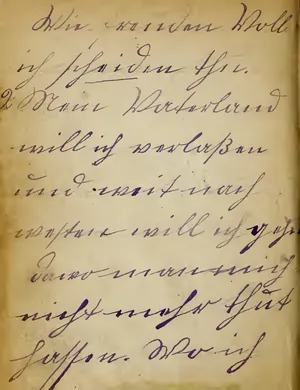 ich scheiden thu.
2 Mein Vaterland
will ich verlaßen
und weit nach
westen will ich gehn
dawo man mich
nicht mehr thut
hassen. Wo ich